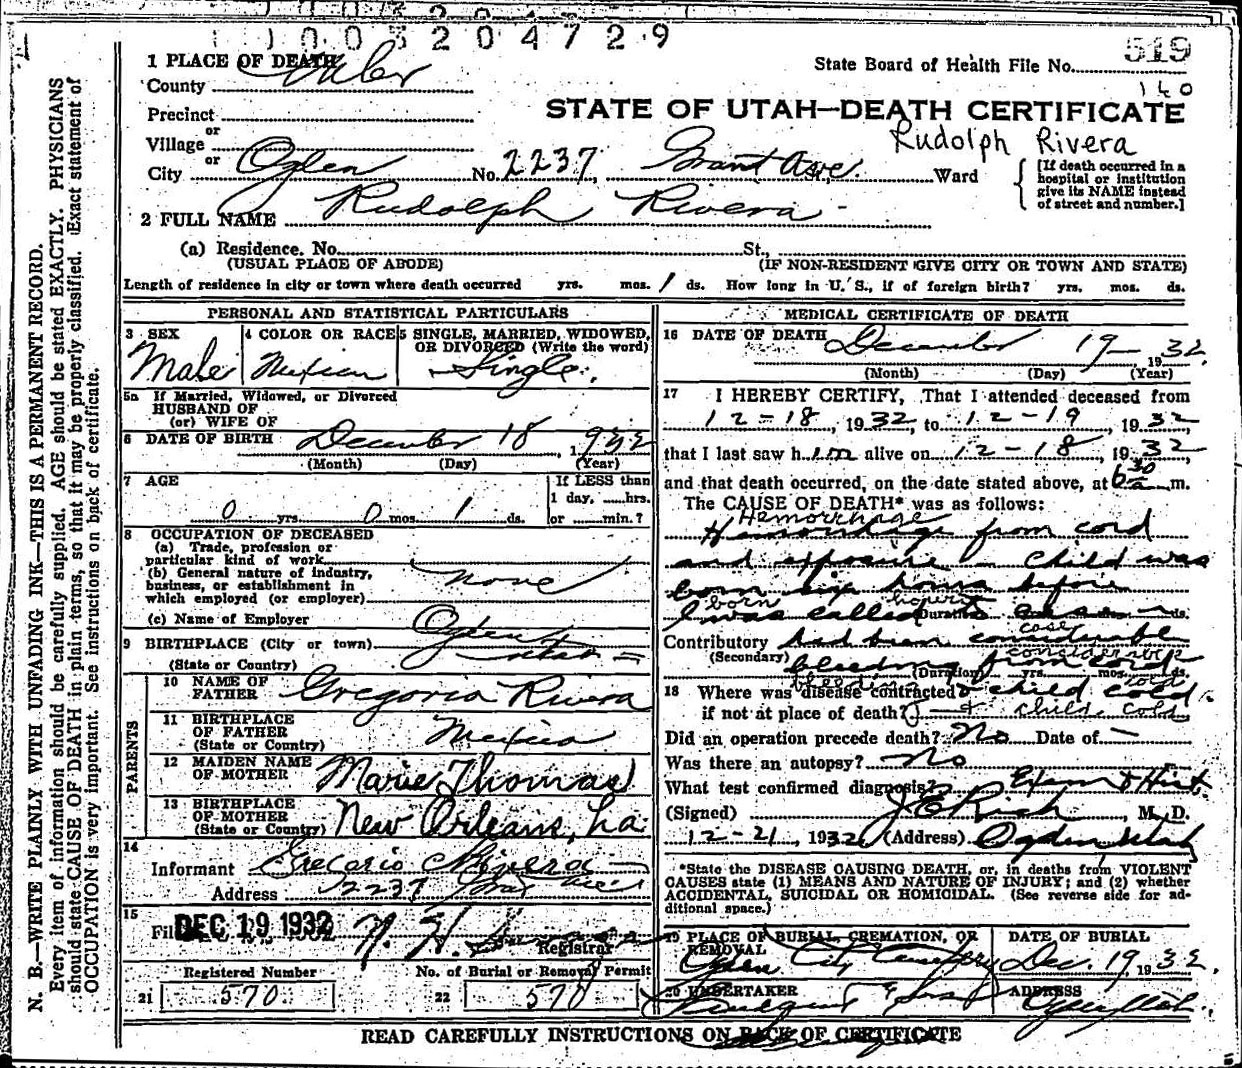 1003204729
519
State Board of Health File No.
140
1 PLACE OF DEATH
County Weber
STATE OF UTAH—DEATH CERTIFICATE
Precinct
or
Village
Rudolph Rivera
or
City Ogden No. 2237, Grant Ave. Ward
[If death occurred in a
hospital or institution
give its NAME instead
of street and number.]
2 FULL NAME Rudolph Rivera
(a) Residence. No. St.,
(USUAL PLACE OF ABODE) (IF NON-RESIDENT GIVE CITY OR TOWN AND STATE)
Length of residence in city or town where death occurred yrs. mos. 1 ds. How long in U. S., if of foreign birth? yrs. mos. ds.
PERSONAL AND STATISTICAL PARTICULARS
3 SEX
Male
4 COLOR OR RACE
Mexican
5 SINGLE, MARRIED, WIDOWED,
OR DIVORCED (Write the word)
Single
5a If Married, Widowed, or Divorced
HUSBAND OF
(or) WIFE OF
6 DATE OF BIRTH December 18, 1932
(Month) (Day) (Year)
7 AGE
0 yrs. 0 mos. 1 ds.
If LESS than
1 day, hrs.
or min.?
8 OCCUPATION OF DECEASED
(a) Trade, profession or
particular kind of work
(b) General nature of industry,
business, or establishment in
which employed (or employer)
none
(c) Name of Employer
9 BIRTHPLACE (City or town) Ogden
(State or Country) Utah
PARENTS
10 NAME OF
FATHER Gregorio Rivera
11 BIRTHPLACE
OF FATHER
(State or Country) Mexico
12 MAIDEN NAME
OF MOTHER Marie Thomas
13 BIRTHPLACE
OF MOTHER
(State or Country) New Orleans, La.
14
Informant Gregorio Rivera
Address 2237 Grant Ave.
15
Filed DEC 19 1932
Registrar
Registered Number
21 570
No. of Burial or Removal Permit
22 570
MEDICAL CERTIFICATE OF DEATH
16 DATE OF DEATH December 19 — 1932
(Month) (Day) (Year)
17 I HEREBY CERTIFY, That I attended deceased from
12-18, 1932, to 12-19, 1932
that I last saw him alive on 12-18, 1932,
and that death occurred, on the date stated above, at 6 30 a m.
The CAUSE OF DEATH* was as follows:
Hemorrhage
Hemorrhage from cord
and exposure - Child was
born six hours before
born hours
I was called to case
(Duration) ds.
case
Contributory had been considerable
(Secondary) considerable
bleeding from cord
(Duration) yrs. mos. ds.
bleeding cord
18 Where was disease contracted & child cold
if not at place of death? & child cold
Did an operation precede death? No Date of —
Was there an autopsy? No
What test confirmed diagnosis? Exam & Hist.
(Signed) J E Rich, M. D.
12-21, 1932 (Address) Ogden Utah
*State the DISEASE CAUSING DEATH, or, in deaths from VIOLENT
CAUSES state (1) MEANS AND NATURE OF INJURY; and (2) whether
ACCIDENTAL, SUICIDAL OR HOMICIDAL. (See reverse side for ad-
ditional space.)
19 PLACE OF BURIAL, CREMATION, OR
REMOVAL
Ogden City Cemetery
DATE OF BURIAL
Dec. 19, 1932.
20 UNDERTAKER
& Sons
ADDRESS
Ogden Utah
READ CAREFULLY INSTRUCTIONS ON BACK OF CERTIFICATE
N. B.—WRITE PLAINLY WITH UNFADING INK—THIS IS A PERMANENT RECORD.
Every item of information should be carefully supplied. AGE should be stated EXACTLY. PHYSICIANS
should state CAUSE OF DEATH in plain terms, so that it may be properly classified. Exact statement of
OCCUPATION is very important. See instructions on back of certificate.